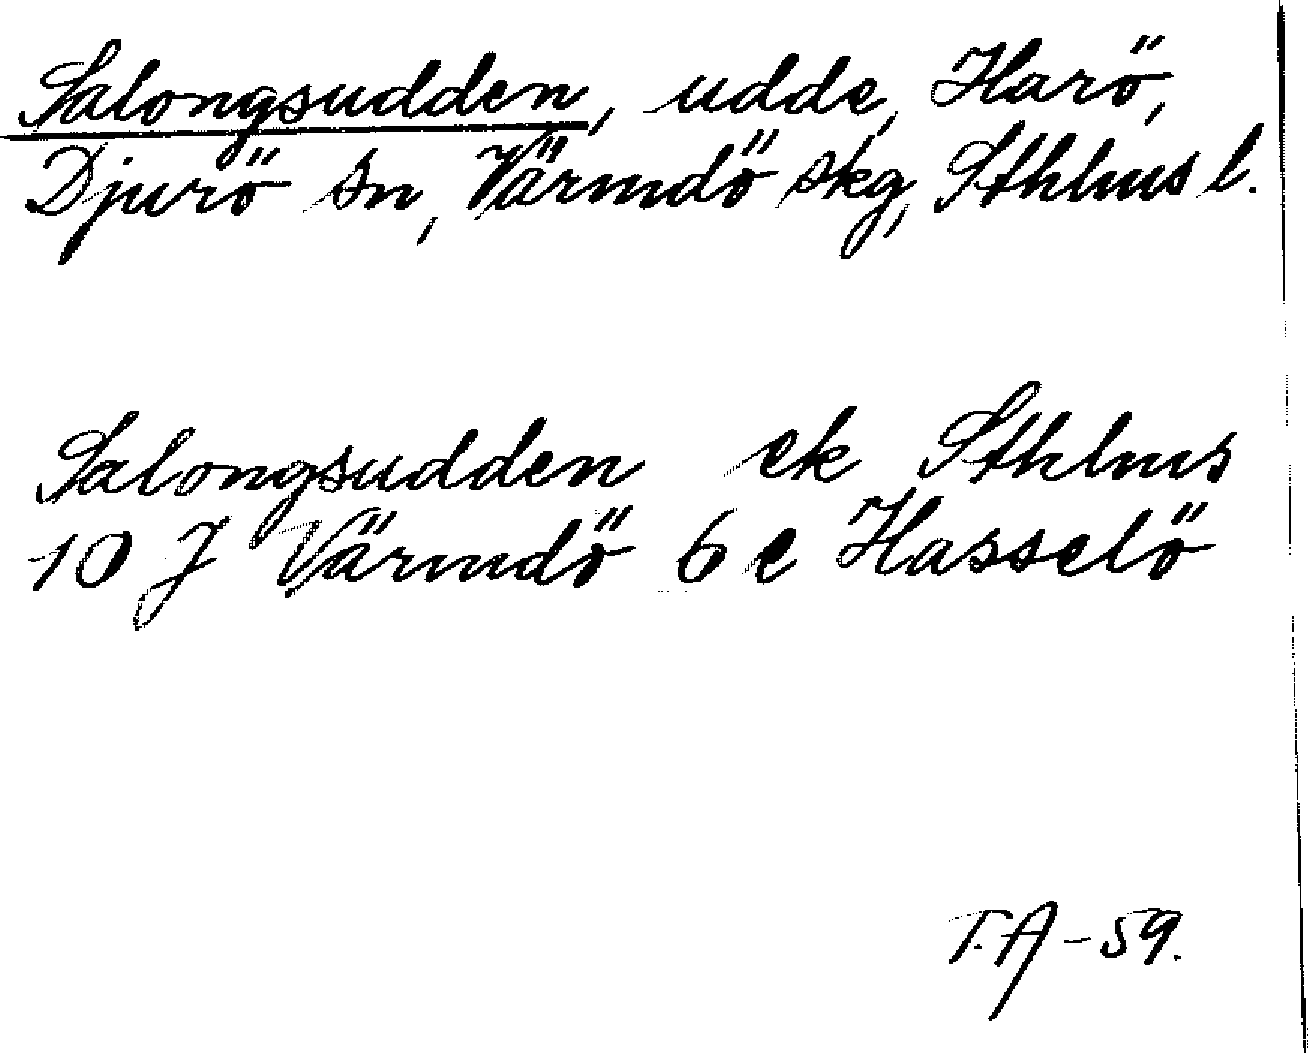 Salongsudden, udde, Harö,
Djurö sn, Värmdö skg, Sthlms l.
Salongsudden ek Sthlms
10 J Värmdö 6 e Hasselö
T.A-59.